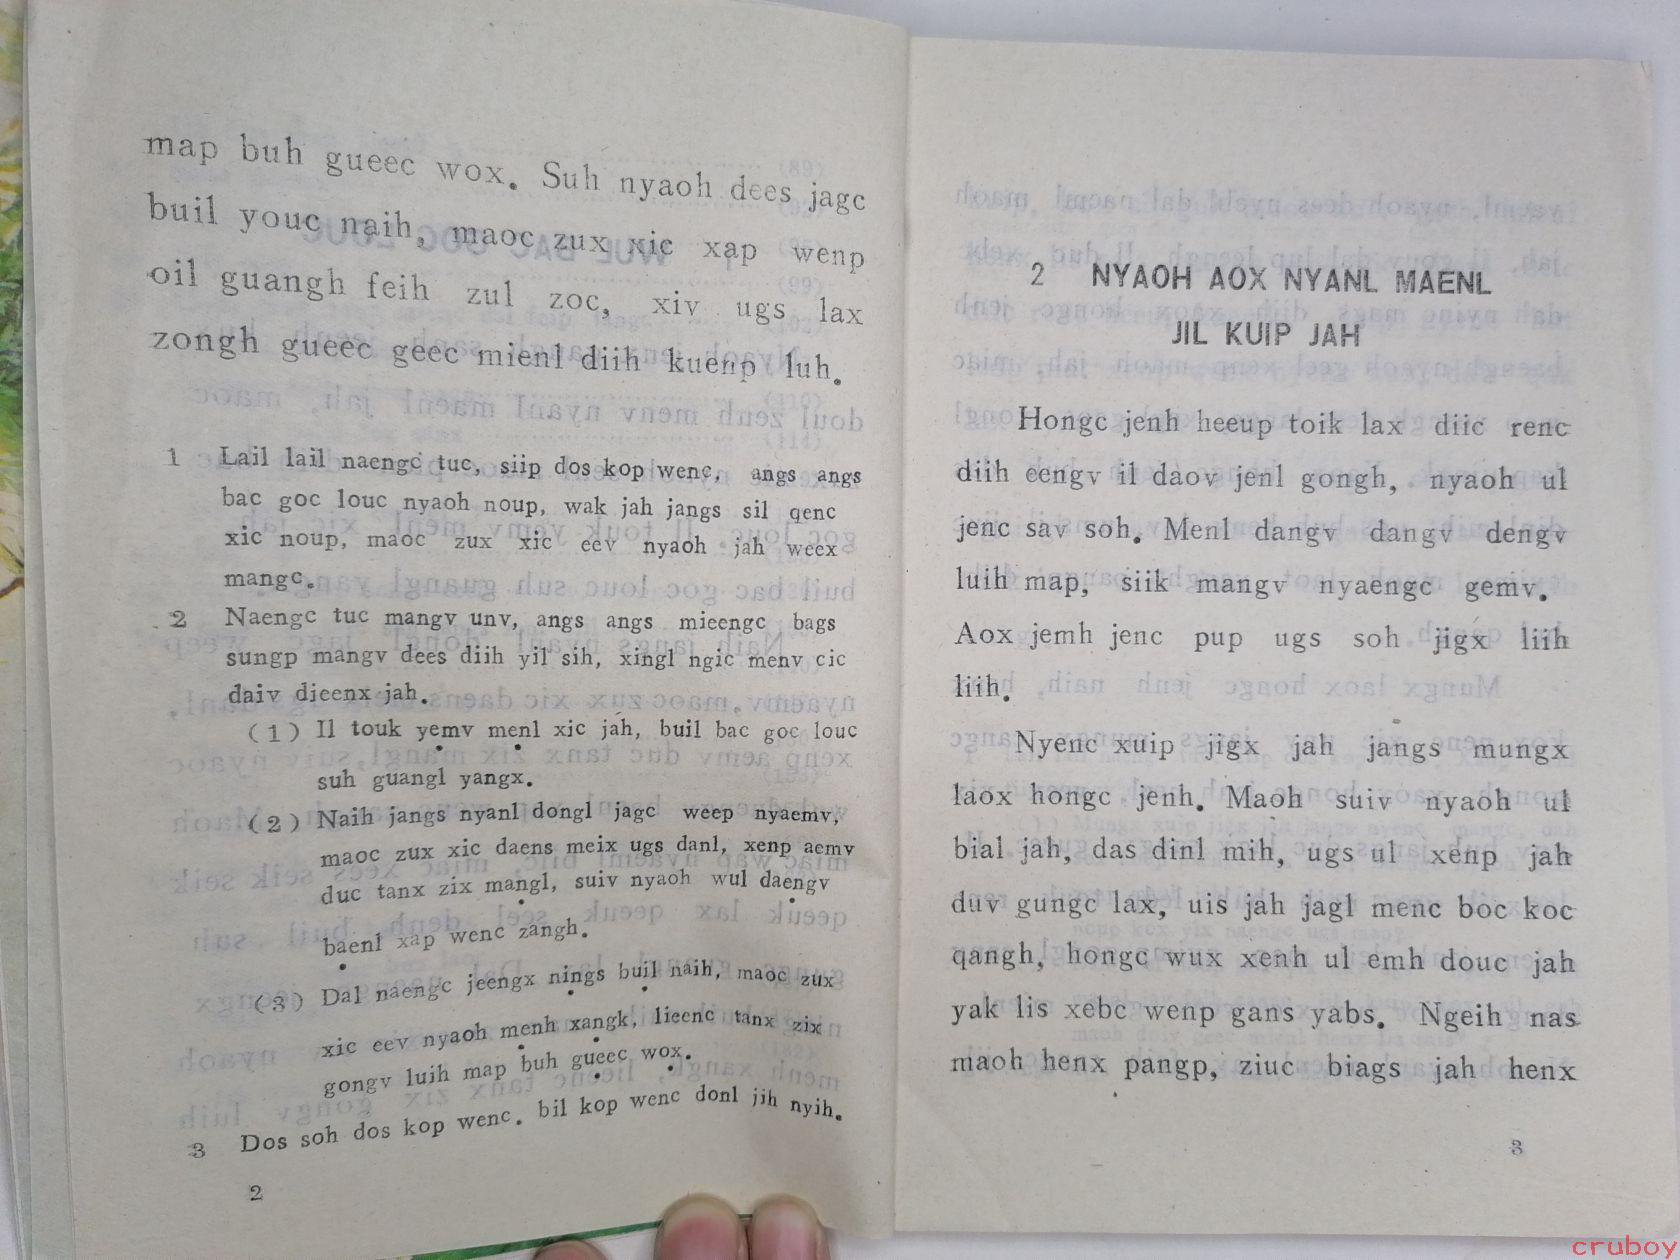 map buh gueec wox. Suh nyaoh dees jagc
buil youc naih, maoc zux xic xap wenp
oil guangh feih zul zoc, xiv ugs lax
zongh gueec geec mienl diih kuenp luh.
1 Lail lail naengc tuc, siip dos kop wenc, angs angs
bac goc louc nyaoh noup, wak jah jangs sil qenc
xic noup, maoc zux xic eev nyaoh jah weex
mangc.
2 Naengc tuc mangv unv, angs angs mieengc bags
sungp mangv dees diih yil sih, xingl ngic menv cic
daiv dieenx jah.
(1) Il touk yemv menl xic jah, buil bac goc louc
suh guangl yangx.
(2) Naih jangs nyanl dongl jagc weep nyaemv,
maoc zux xic daens meix ugs danl, xenp aemv
duc tanx zix mangl, suiv nyaoh wul daengv
baenl xap wenc zangh.
(3) Dal naengc jeengx nings buil naih, maoc zux
xic eev nyaoh menh xangk, lieenc tanx zix
gongv luih map buh gueec wox.
3 Dos soh dos kop wenc. bil kop wenc donl jih nyih.
2
2 NYAOH AOX NYANL MAENL
JIL KUIP JAH
Hongc jenh heeup toik lax diic renc
diih eengv il daov jenl gongh, nyaoh ul
jenc sav soh. Menl dangv dangv dengv
luih map, siik mangv nyaengc gemv.
Aox jemh jenc pup ugs soh jigx liih
liih.
Nyenc xuip jigx jah jangs mungx
laox hongc jenh. Maoh suiv nyaoh ul
bial jah, das dinl mih, ugs ul xenp jah
duv gungc lax, uis jah jagl menc boc koc
qangh, hongc wux xenh ul emh douc jah
yak lis xebc wenp gans yabs. Ngeih nas
maoh henx pangp, ziuc biags jah henx
3
cruboy